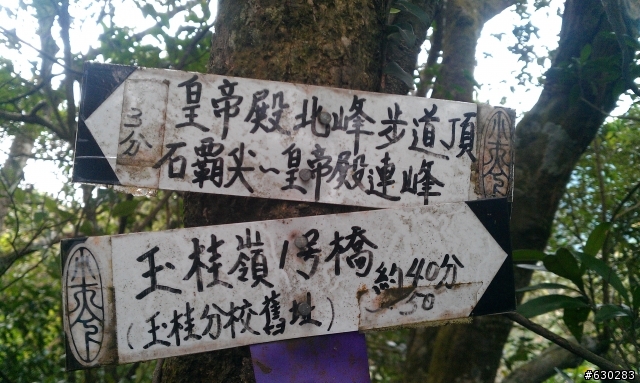 皇帝殿北峰步道頂
3分
石霸尖~皇帝殿連峰
玉桂嶺1号橋
約40分
50
(玉桂分校舊址)
#630283